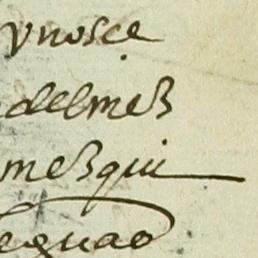 ynosce
delmes
mesqui
egnao